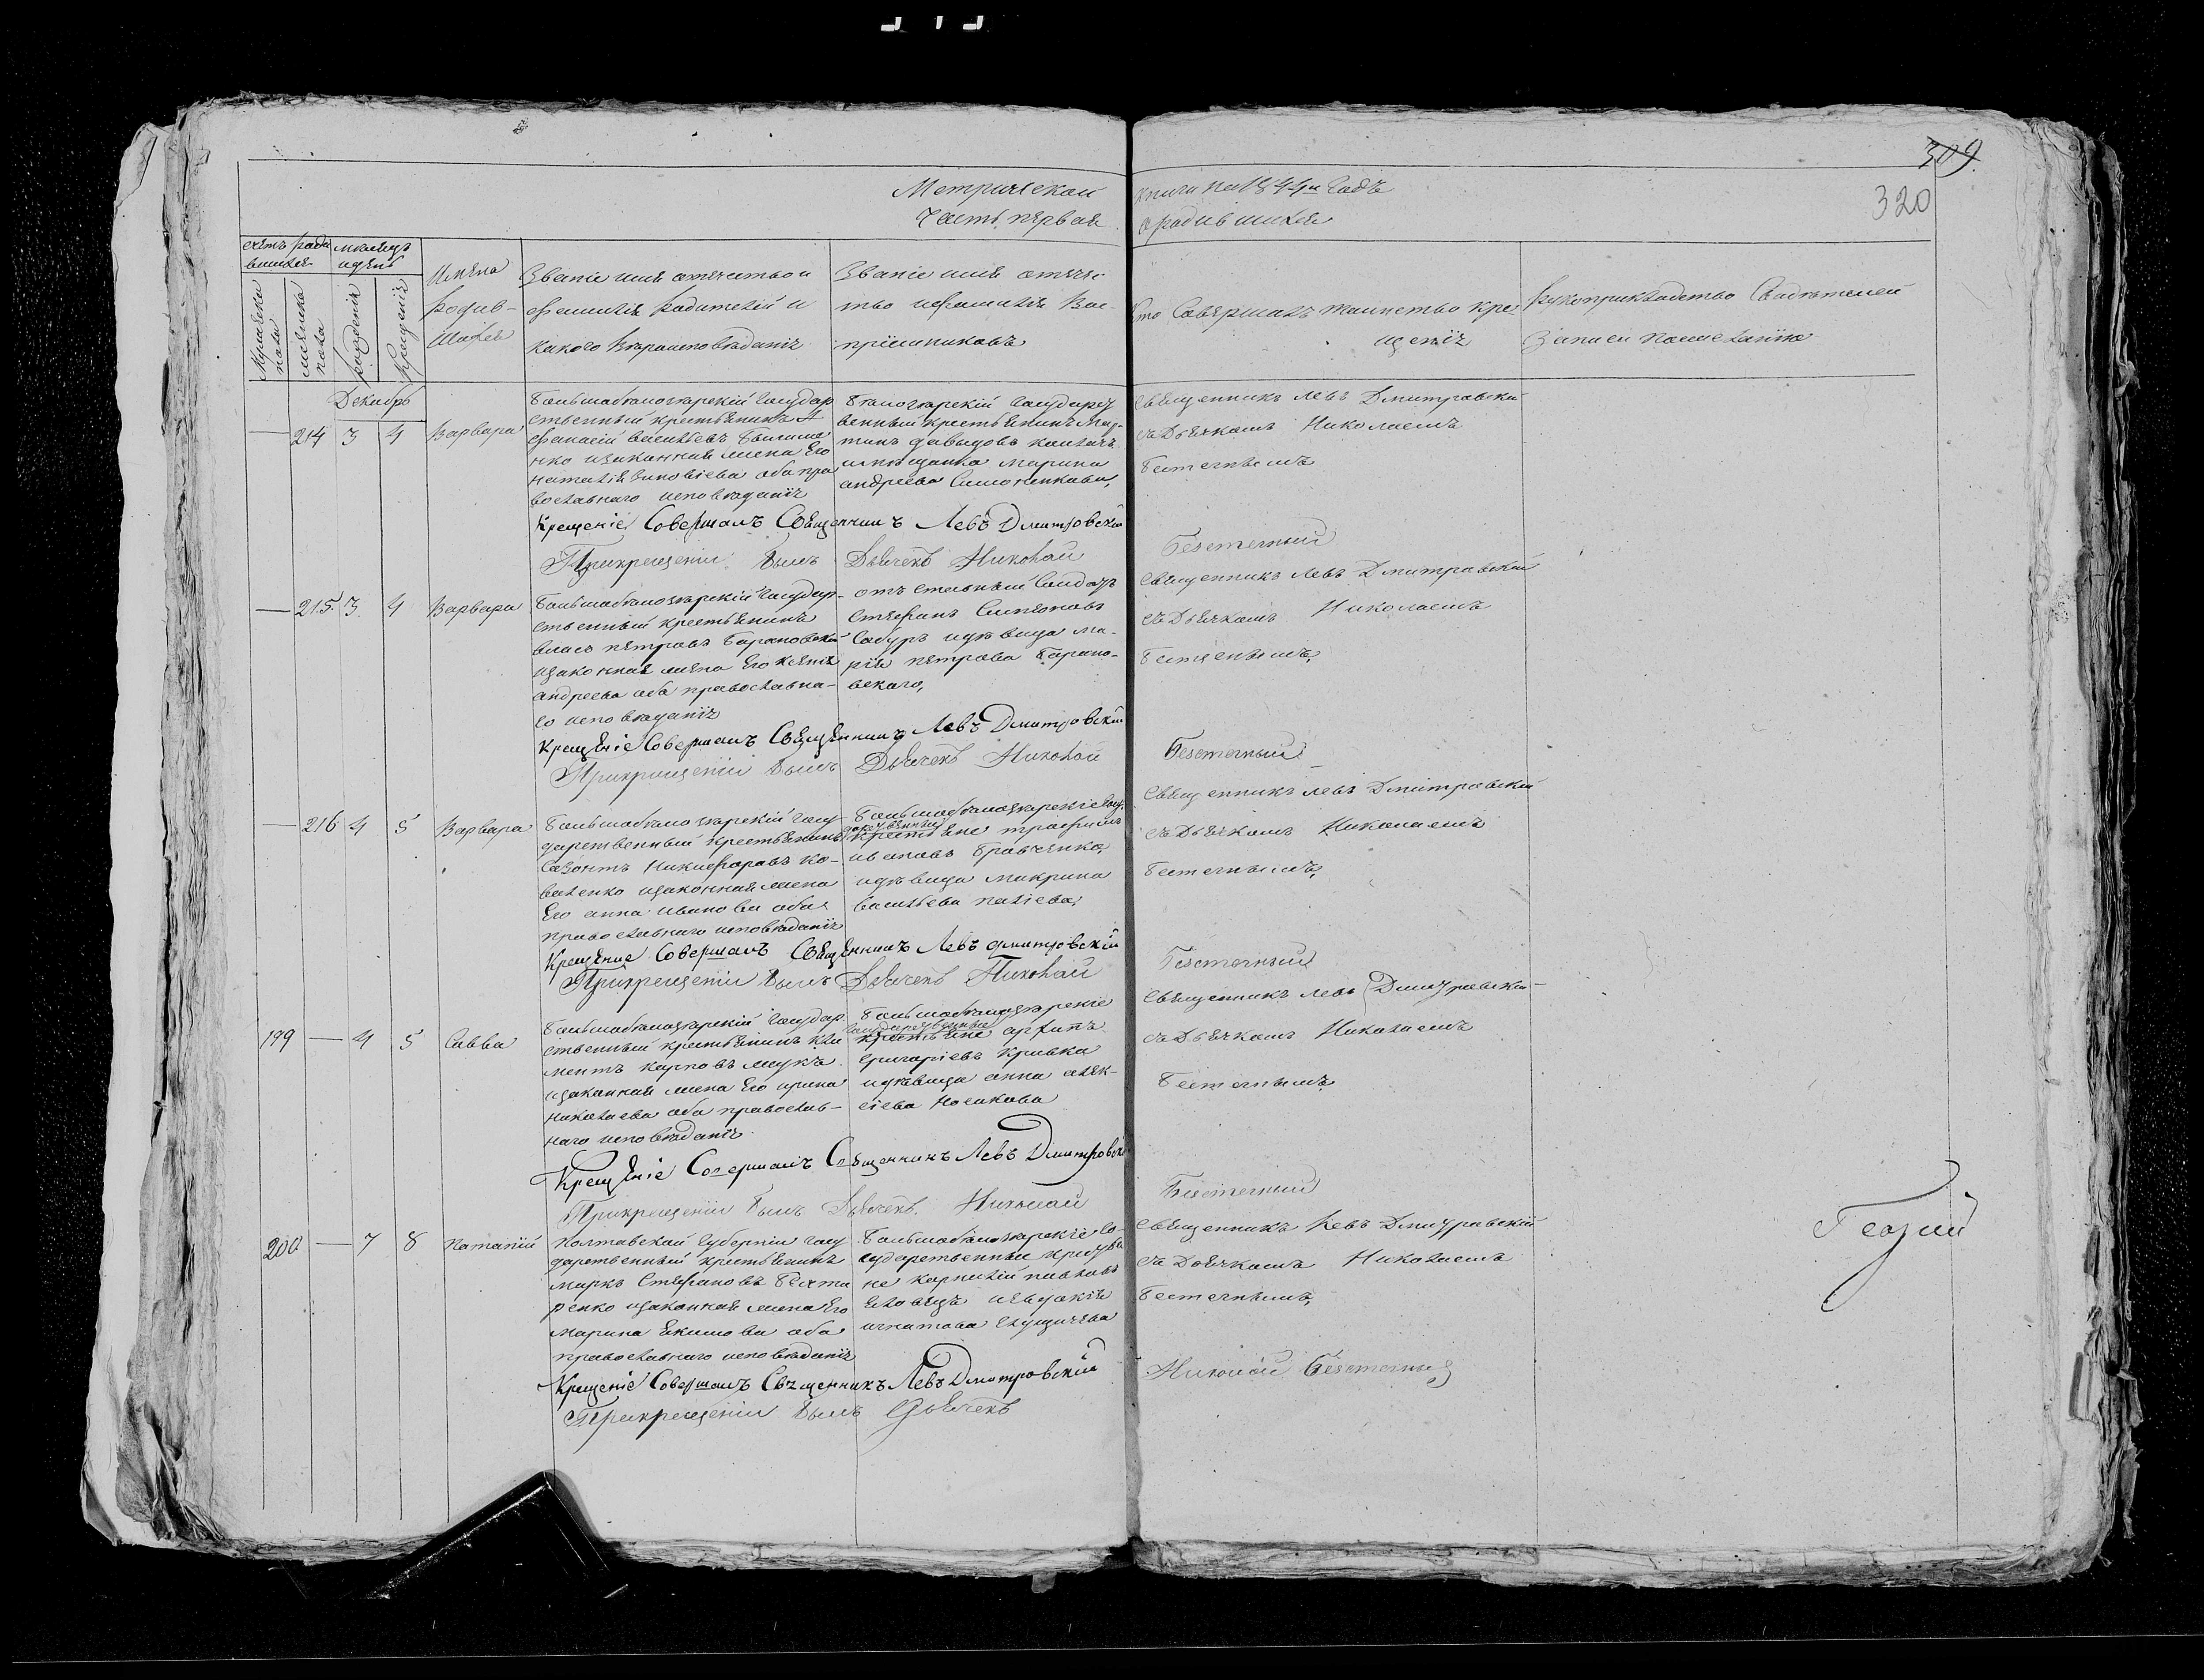 309
320
Метрической книги на 1844й годъ
Часть первая о родившихся
счетъ роди
вшихся
мѣсяцъ
и день
Мужеска
пола
женска
пола
рожденія
крещенія
Имена
родив-
шихся
Званіе имя отечество и
фамилія родителей и
какого вѣроисповѣданія
Званіе имя отечес
тво и фамилія Вос-
пріемниковъ
Кто Совершалъ таинство Кре
щенія
Рукоприкладство Свидѣтелей
Записи по желанію
Декабрь
214 3 4 Варвара
Большобѣлозерскій Государ
ственный крестьянинъ А
фанасій васильевъ
и законная жена Его
наталія зиновіева оба пра
вославнаго исповѣданія
Бѣлозерскій государст
венный крестьянинъ Мар-
тинъ давыдовъ
и мѣщанка марина
андреева Симоненкова,
Священникъ Левъ Дмитровскій
съ Дьячкомъ Николаемъ
Безтечнымъ
Крещеніе Совершалъ Священникъ Левъ Дмитровскій
При крещеніи былъ Дьячекъ Николай Безтечный
215. 3. 4 Варвара
Большобѣлозерскій государ-
ственный крестьянинъ
власъ петровъ Барановскій
и законная жена Его ксенія
андреева оба православна-
го исповѣданія
отъ Стальный Солдатъ
Стефанъ Симоновъ
Сабуръ и дѣвица ма-
рія петрова Барано-
вскаго,
Священникъ Левъ Дмитровскій
съ Дьячкомъ Николаемъ
Безтечнымъ,
Крещеніе Совершалъ Священникъ Левъ Дмитровскій
При крещеніи былъ Дьячекъ Николай Безтечный
216 4 5 Варвара
Большобѣлозерскій госу
дарственный крестьянинъ
Созонтъ Никифоровъ Ко-
валенко и законная жена
Его анна иванова оба
православнаго исповѣданія
Большобѣлозерскіе Госу
дарственные
крестьяне трофимъ
ивановъ Кравченко,
и дѣвица макрина
васильева паліева,
Священникъ Левъ Дмитровскій
съ Дьячкомъ Николаемъ
Безтечнымъ,
Крещеніе Совершалъ Священникъ Левъ Дмитровскій
При крещеніи былъ Дьячекъ Николай Безтечный
199 4 5 Савва
Большобѣлозерскій Государ
ственный крестьянинъ Кли
ментъ карповъ жукъ
и законная жена Его ирина
николаева оба православ-
наго исповѣданія
Большобѣлозерскіе
Государственные
крестьяне архипъ
григоріевъ Кривка
и дѣвица анна алек-
сіева Носикова
Священникъ Левъ Дмитровскій
съ Дьячкомъ Николаемъ
Безтечнымъ
Крещеніе Совершалъ Священникъ Левъ Дмитровскій
При крещеніи былъ Дьячекъ Николай Безтечный
200 7 8 Потапій
Полтавской Губерніи госу
дарственный крестьянинъ
маркъ Стефановъ
ренко и законная жена Его
марина Екимова оба
православнаго исповѣданія
Большобѣлозерскіе го-
сударственные крестья
не корнилій павловъ
и евдокія
игнатова
Священникъ Левъ Дмитровскій
съ Дьячкомъ Николаемъ
Безтечнымъ,
Крещеніе Совершалъ Священникъ Левъ Дмитровскій
При крещеніи былъ Дьячекъ Николай Безтечный